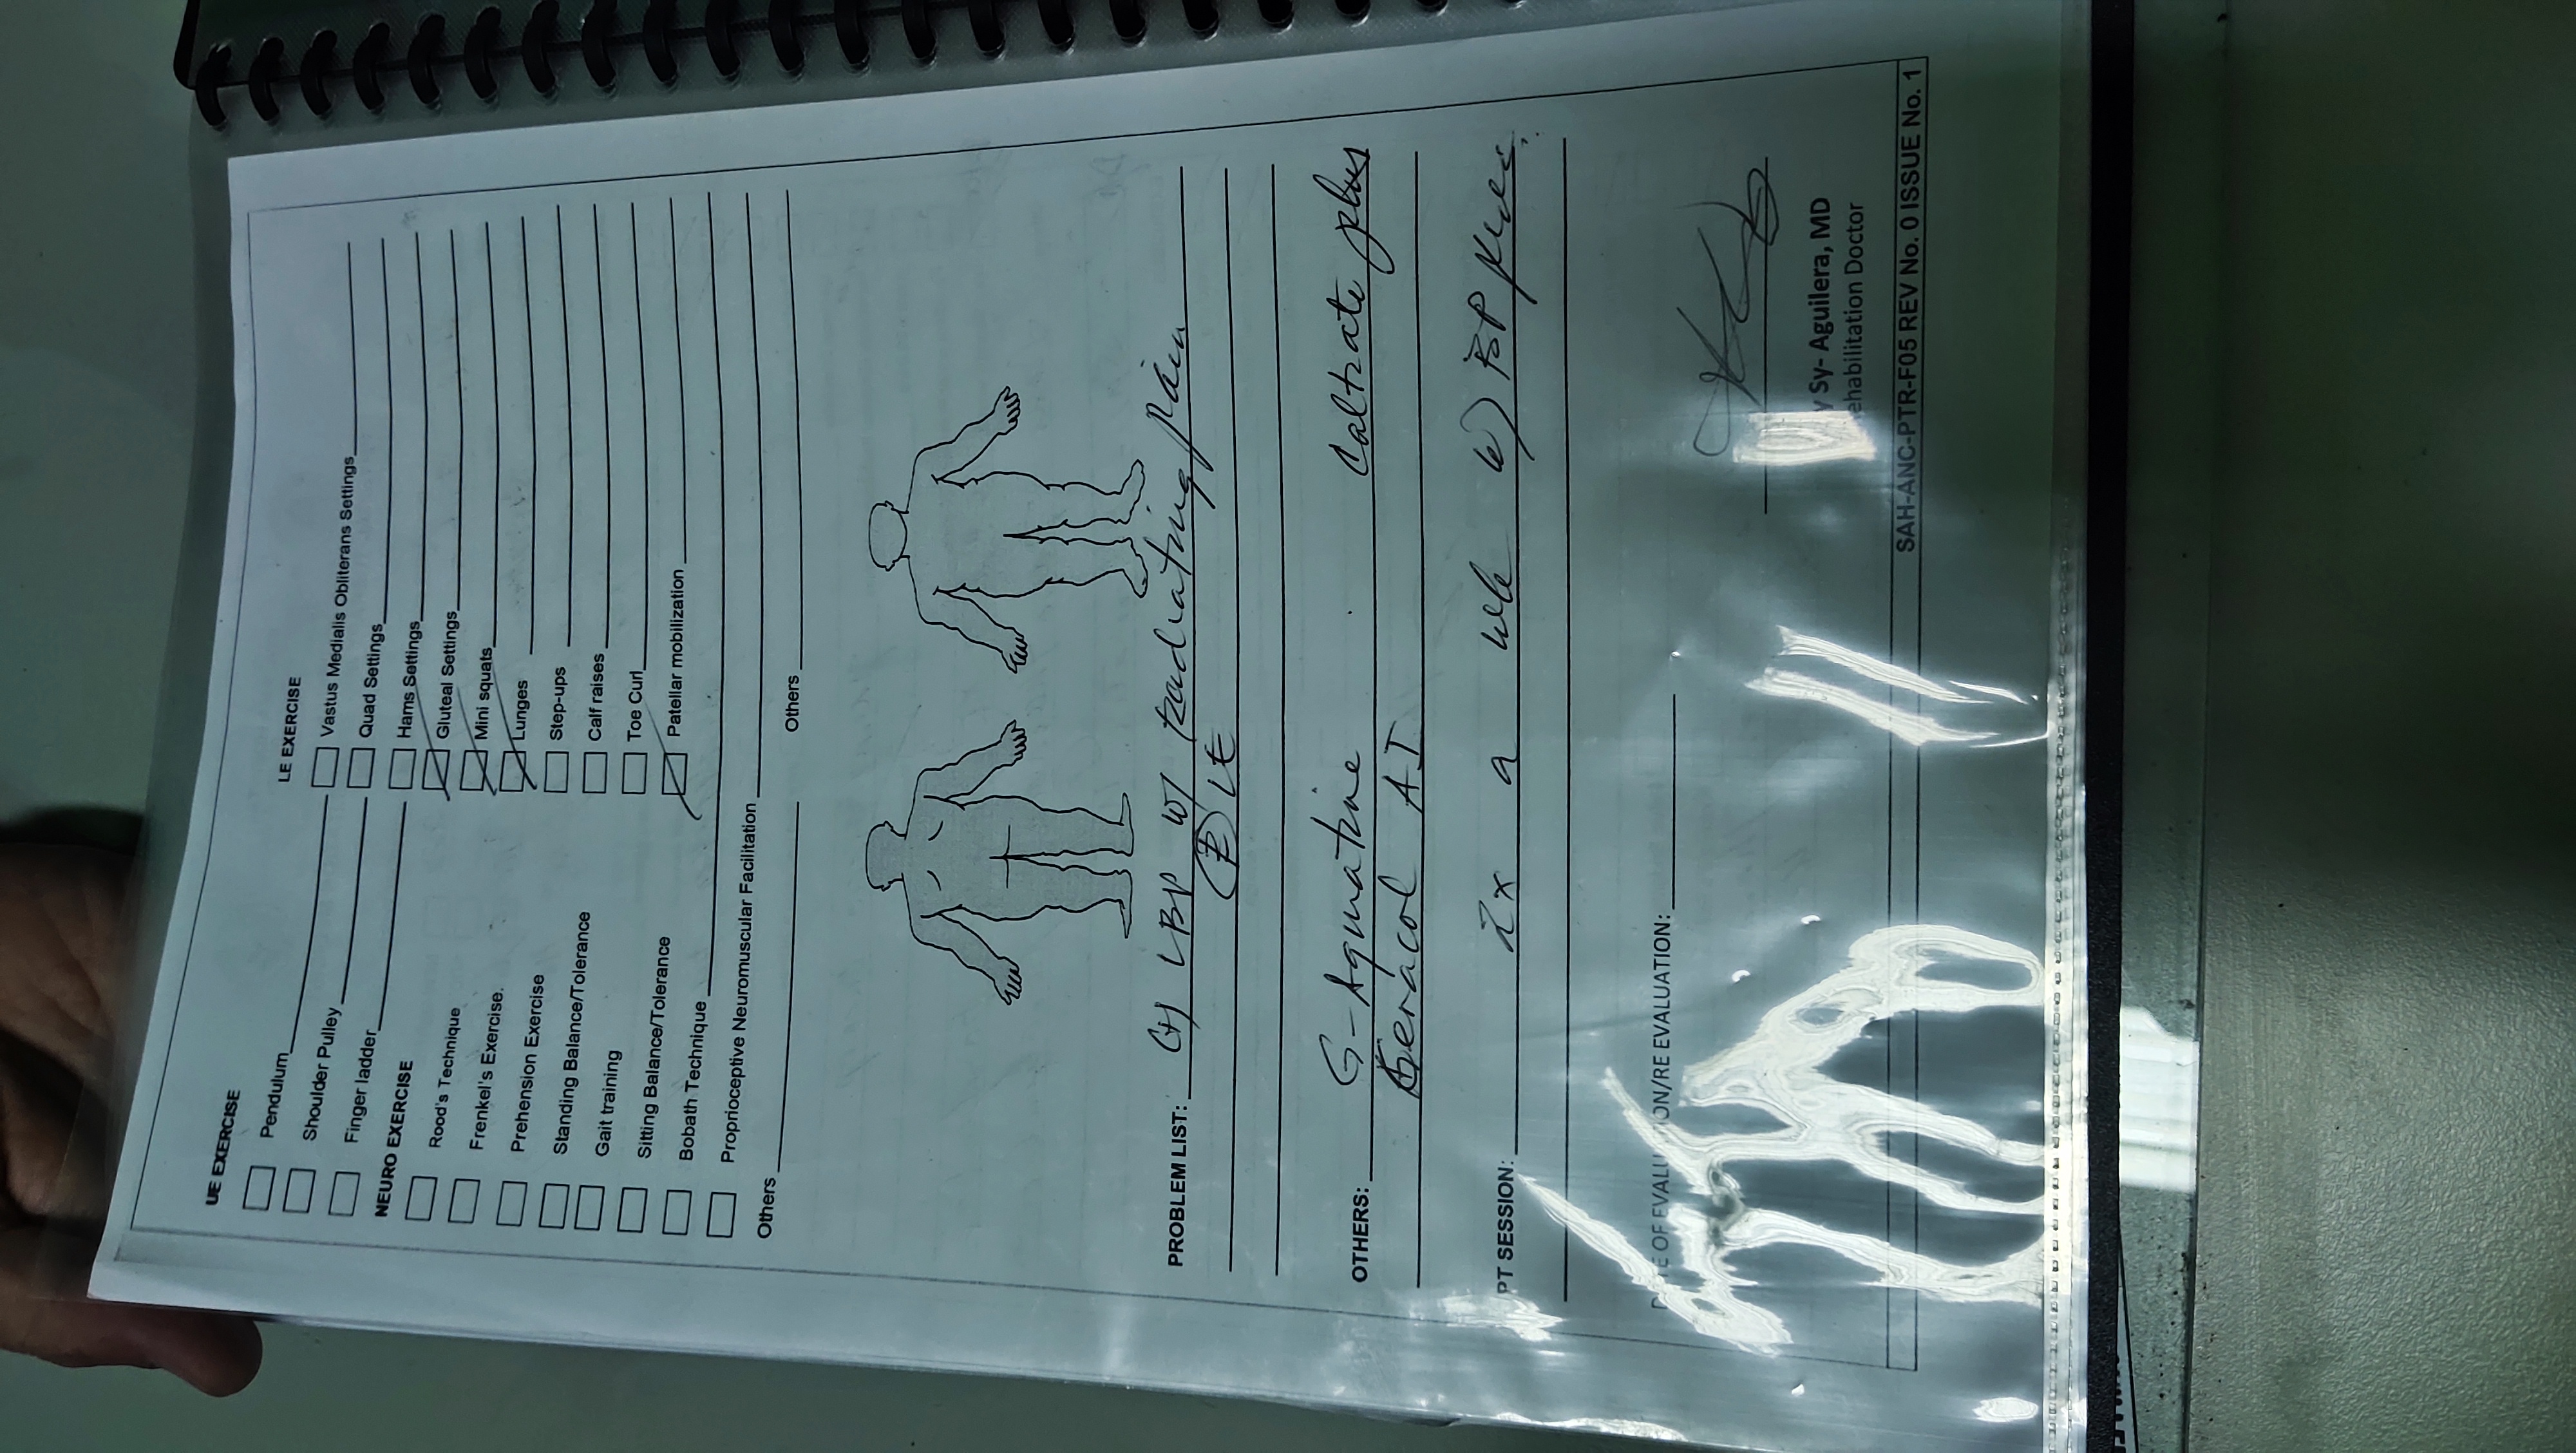 UE EXERCISE
Pendulum
Shoulder Pulley
Finger ladder
NEURO EXERCISE
Rood's Technique
Frenkel's Exercise.
Prehension Exercise
Standing Balance/Tolerance
Gait training
Sitting Balance/Tolerance
Bobath Technique
Proprioceptive Neuromuscular Facilitation
Others
LE EXERCISE
Vastus Medialis Obliterans Settings
Quad Settings
Hams Settings
Gluteal Settings
Mini squats
Lunges
Step-ups
Calf raises
Toe Curl
Patellar mobilization
Others
PROBLEM LIST: (+) LBP w/ radiating pain
LE
OTHERS: G-Agmatine Caltrate plus
Geracol AI
PT SESSION: 2x a wk w/ BP
DATE OF EVALUATION/RE EVALUATION:
y Sy- Aguilera, MD
ehabilitation Doctor
SAH-ANC-PTR-F05 REV No. 0 ISSUE No. 1